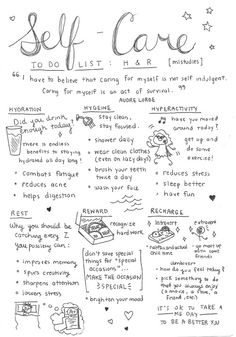 Self-Care
TO DO LIST : H & R [mistudies]
"I have to believe that caring for myself is not self indulgent.
Caring for myself is an act of survival."
AUDRE LORDE
HYDRATION
Did you drink
enough today?
there is endless
benefits to staying
hydrated all day long!
• combats fatigue
• reduces acne
• helps digestion
HYGIENE
stay clean,
stay focused.
• shower daily
• wear clean clothes
(even on lazy days)
• brush your teeth
twice a day
• wash your face
HYPERACTIVITY
have you moved
around today?
get up and
do some
exercise!
• reduces stress
• sleep better
• have fun
REST
Why you should be
catching every Z
you possibly can:
• improves memory
• spurs creativity
• sharpens attention
• lowers stress
REWARD
recognize
hard work
don't save special
things for "special
occasions"...
MAKE THE
OCCASION
SPECIAL
• brighten your mood
RECHARGE
introvert
extrovert
alone time
go meet up
with some
friends
omnivert
• how do you feel today?
• pick something to do
that you always enjoy
IT'S OK TO TAKE A
ME DAY
TO BE A BETTER YOU